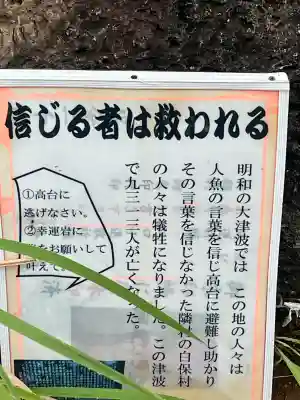 信じる者は救われる
明和の大津波では この地の人々は
人魚の言葉を信じ高台に避難し助かり
その言葉を信じなかった隣村の白保村
の人々は犠牲になりました。この津波
で九三一三人が亡くなった。
①高台に
逃げなさい。
②幸運岩に
をお願いして
叶えて